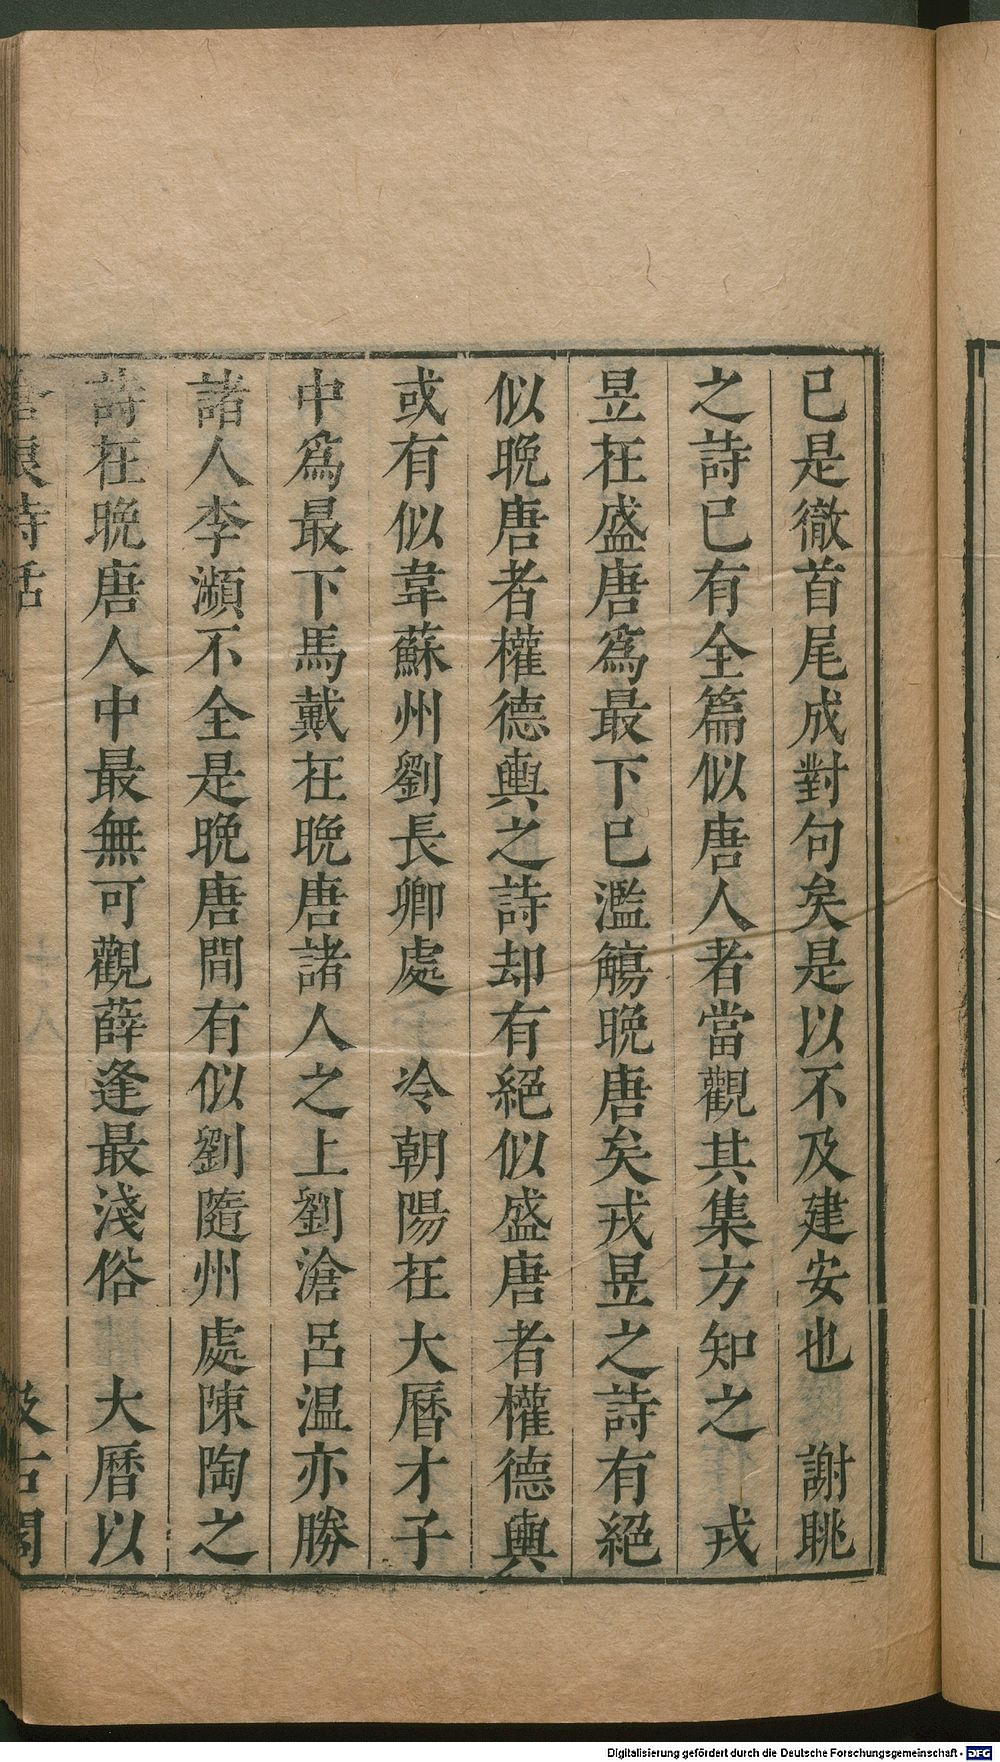 已是徹首尾成對句矣是以不及建安也　謝眺
之詩已有全篇似唐人者當觀其集方知之　戎
昱在盛唐爲最下已濫觴晚唐矣戎昱之詩有絕
似晚唐者權德輿之詩却有絕似盛唐者權德輿
或有似韋蘇州劉長卿處　冷朝陽在大曆才子
中爲最下馬戴在晚唐諸人之上劉滄呂温亦勝
諸人李瀕不全是晚唐間有似劉隨州處陳陶之
詩在晚唐人中最無可觀薛逢最淺俗　大曆以
滄浪詩話　汲古閣
Digitalisierung gefördert durch die Deutsche Forschungsgemeinschaft - DFG